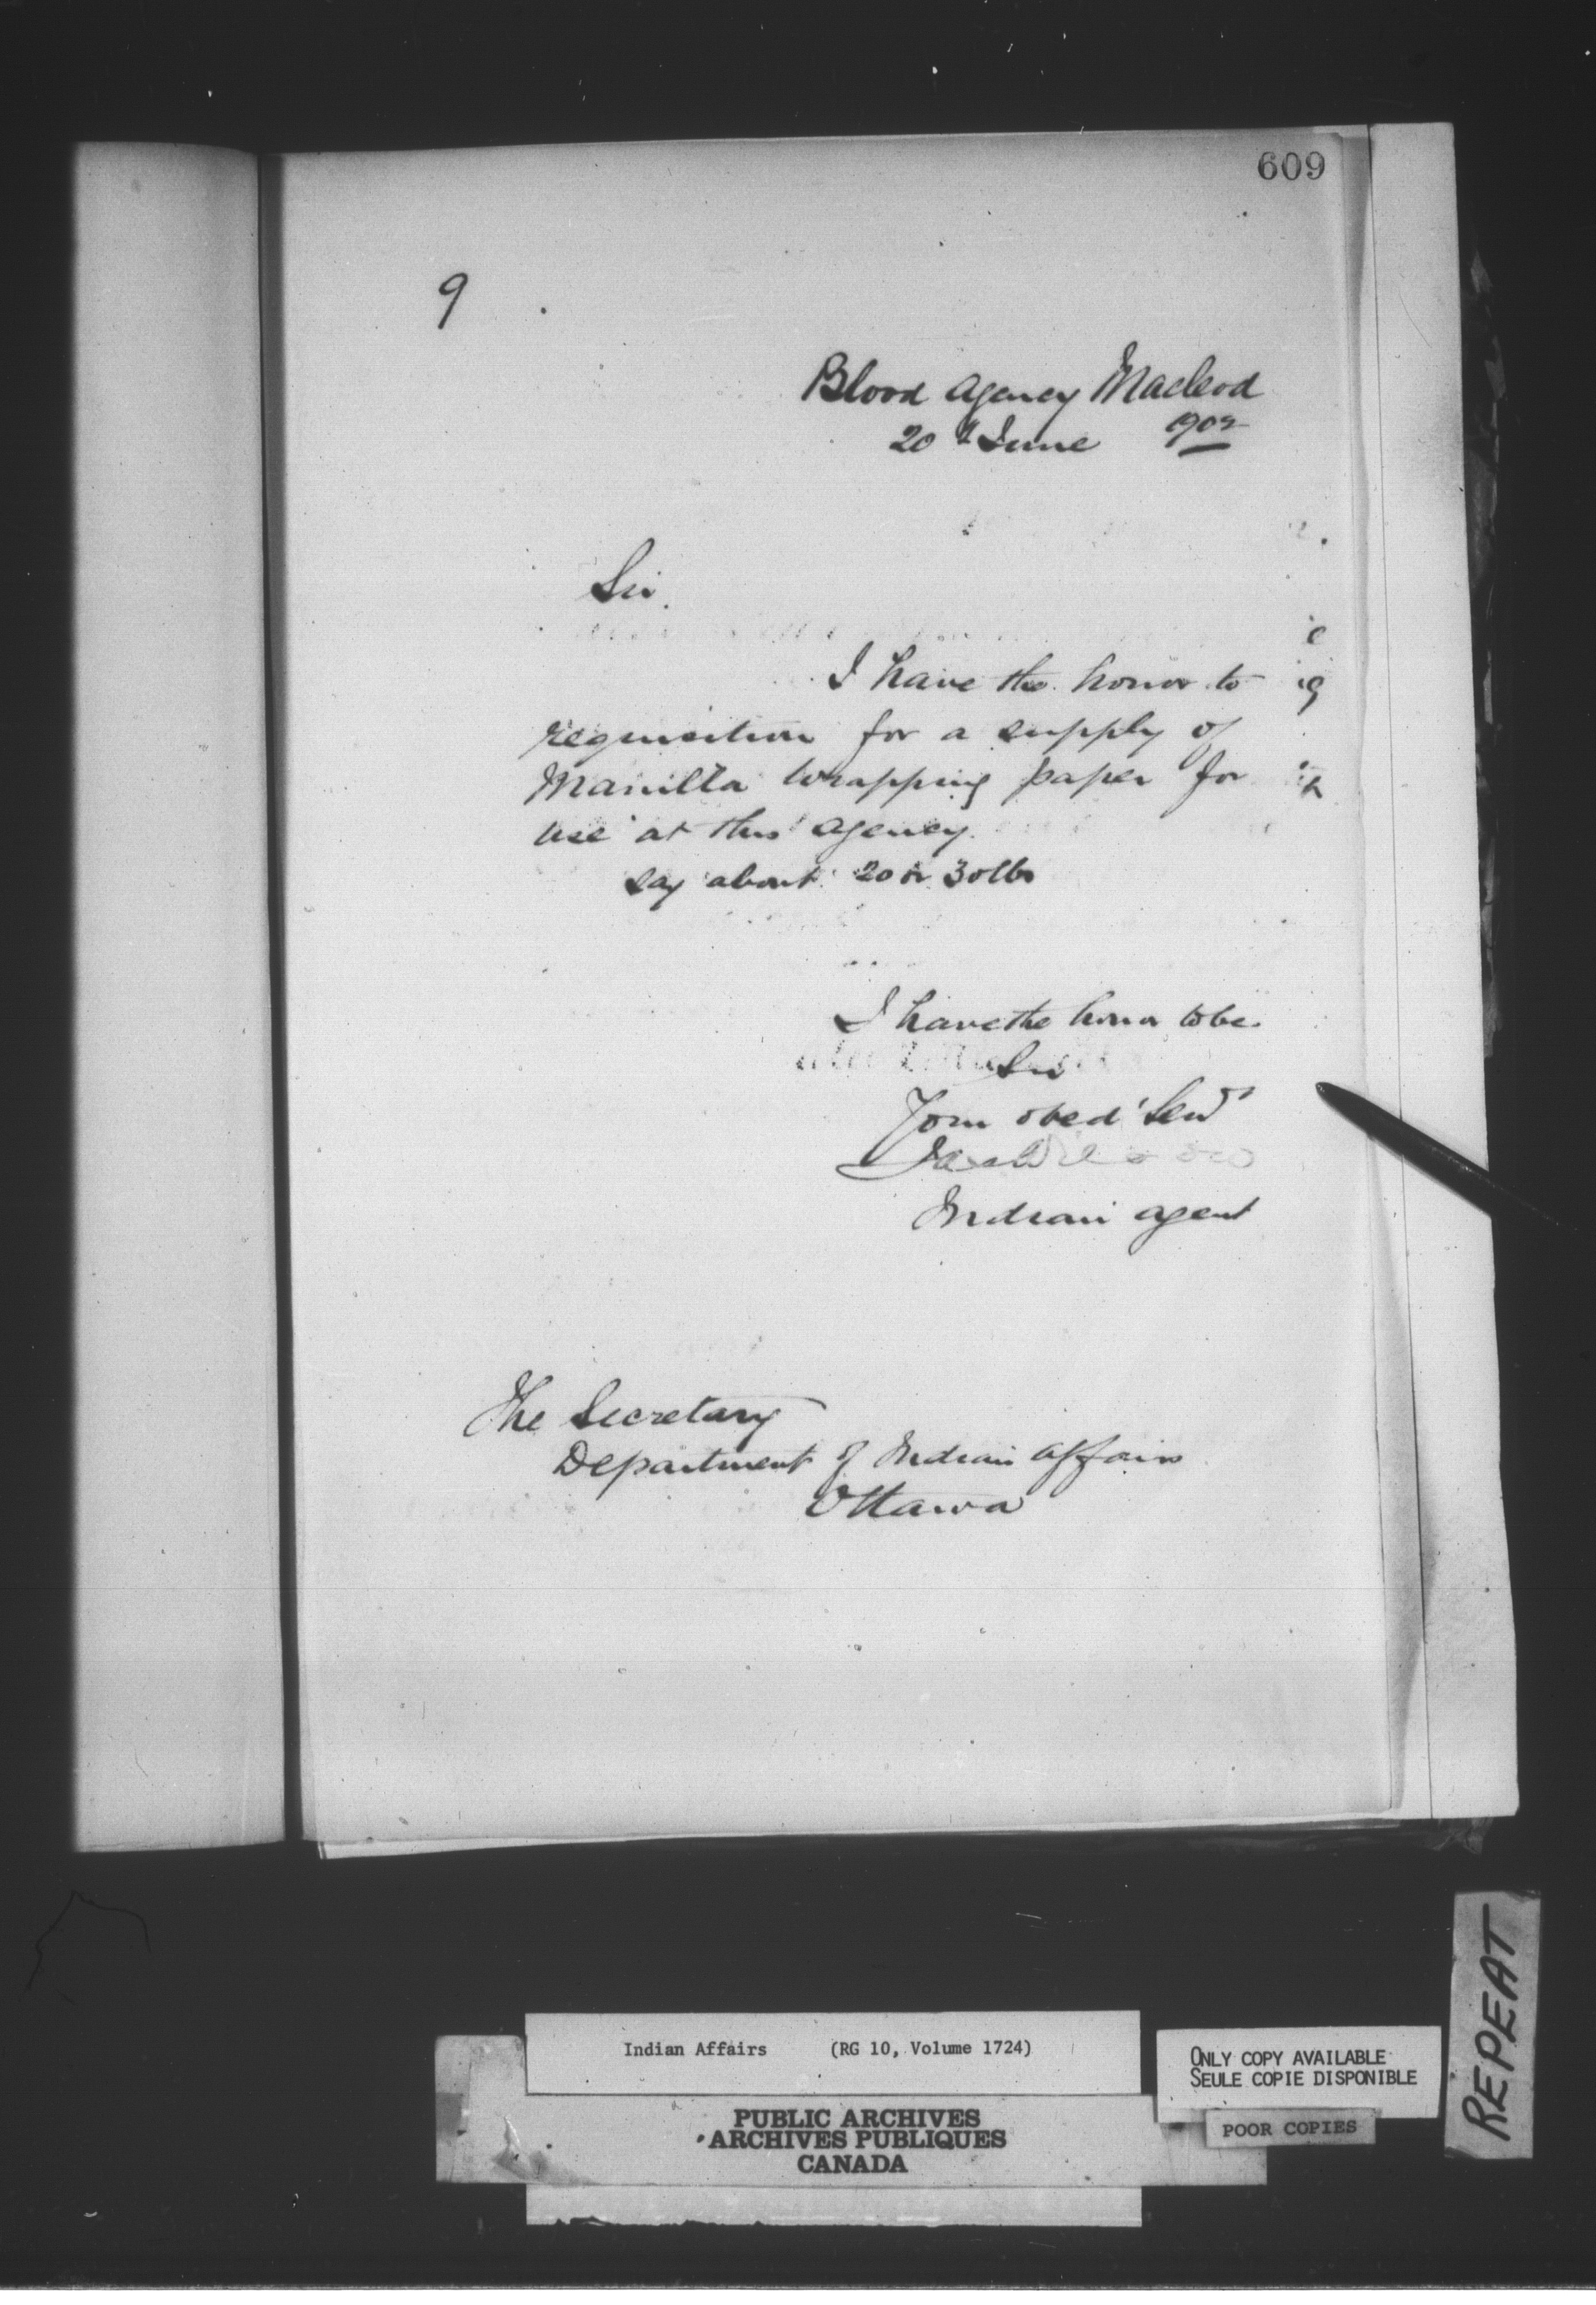 609
9
Blood Agency Macleod
20th June 1902
Sir.
I have the honor to
requisition for a supply of
Manilla Wrapping paper for
use at this agency.
say about 20 or 30 lbs
I have the honor to be
Sir
Your obed' Serv'
Indian agent
The Secretary
Department of Indian Affairs
Ottawa
Indian Affairs (RG 10, Volume 1724)
PUBLIC ARCHIVES
ARCHIVES PUBLIQUES
CANADA
ONLY COPY AVAILABLE
SEULE COPIE DISPONIBLE
POOR COPIES
REPEAT